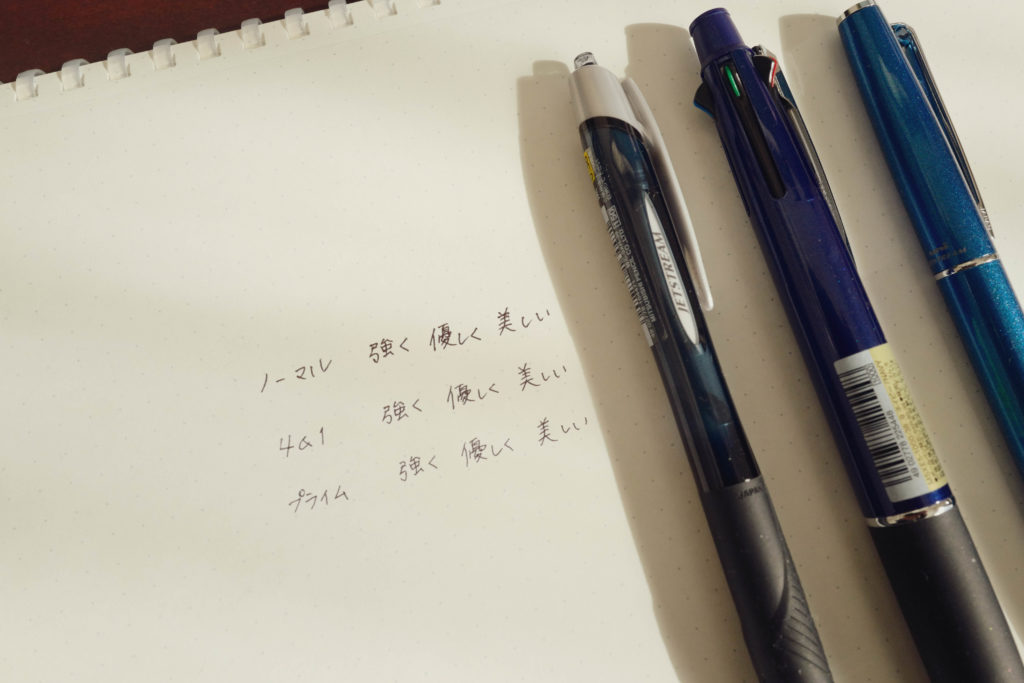 ノーマル 強く 優しく 美しい
4&1 強く 優しく 美しい
プライム 強く 優しく 美しい
JETSTREAM
JAPAN